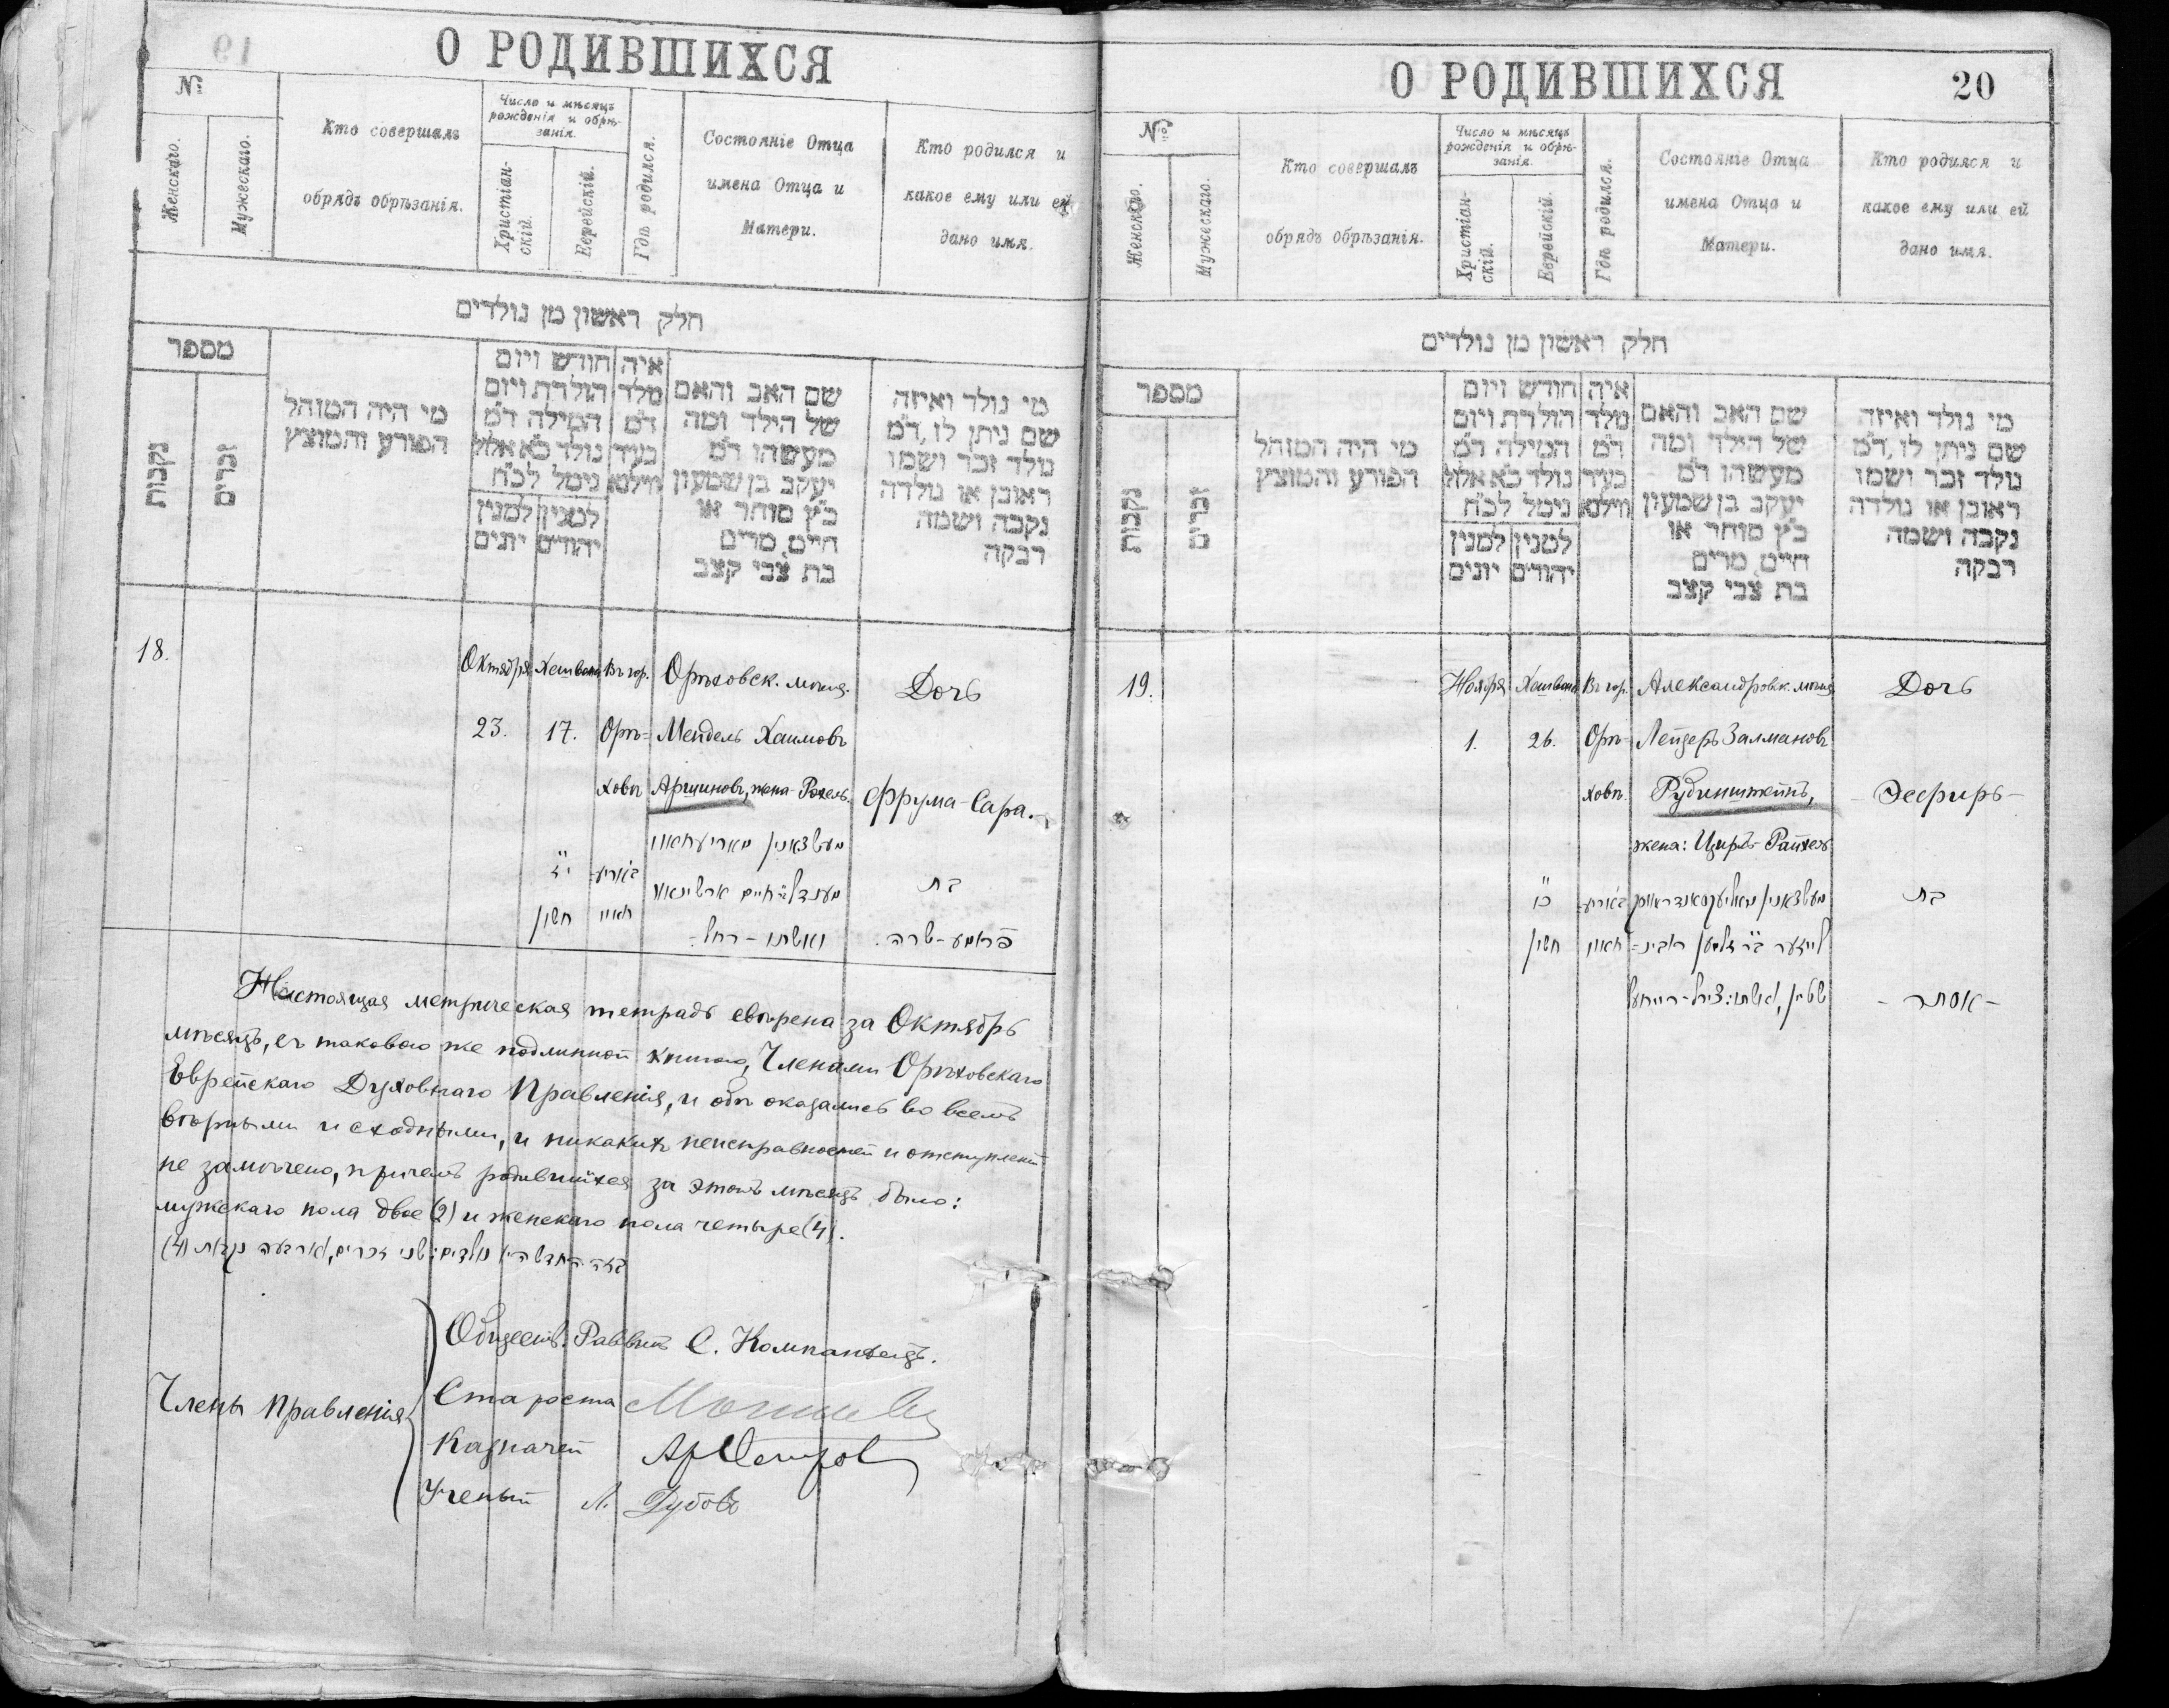 О РОДИВШИХСЯ
№
Женскаго.
Мужескаго.
Кто совершалъ
обрядъ обрѣзанія.
Число и мѣсяцъ
рожденія и обрѣ-
занія.
Христіан-
скій.
Еврейскій.
Гдѣ родился.
Состояніе Отца
имена Отца и
Матери.
Кто родился и
какое ему или ей
дано имя.
חלק ראשון מן נולדים
מספר
נקבות
זכרים
מי היה המוהל
הפורע והמוצץ
חודש ויום
הולדת ויום
המילה ד"מ
נולד כ"א אלול
נימל לכ"ח
למנין יונים
למנין יהודים
איה
מלד
ד"מ
בעיר
ווילנא
שם האב והאם
של הילד ומה
מעשהו ד"מ
יעקב בן שמעון
כ"ץ סוחר או
חייט, מרים
בת צבי קצב
מי נולד ואיזה
שם ניתן לו, ד"מ
נולד זכר ושמו
ראובן או נולדה
נקבה ושמה
רבקה
18.
Октября
23.
Хешвана
17.
Въ гор.
Орѣ-
ховѣ
Орѣховск. мѣщ.
Мендель Хаимовъ
Аршиновъ, жена Рохель.
Дочь
Фрума-Сара.
י"ז
חשון
מענדל ב"ר חיים ארשינאוו
ואשתו - רחל.
בת
פרומע-שרה.
Настоящая метрическая тетрадь свѣрена за Октябрь
мѣсяцъ, съ таковою же подлинной книгою, Членами Орѣховскаго
Еврейскаго Духовнаго Правленія, и обѣ оказались во всемъ
вѣрными и сходными, и никакихъ неисправностей и отступленій
не замѣчено, причемъ родившихся за этотъ мѣсяцъ было:
мужскаго пола двое (2) и женскаго пола четыре (4).
Члены Правленія
Обществ. Раввинъ С. Компанѣецъ.
Староста
Казначей
Ученый Л. Дубовъ
О РОДИВШИХСЯ
20
№
Женскаго.
Мужескаго.
Кто совершалъ
обрядъ обрѣзанія.
Число и мѣсяцъ
рожденія и обрѣ-
занія.
Христіан-
скій.
Еврейскій.
Гдѣ родился.
Состояніе Отца
имена Отца и
Матери.
Кто родился и
какое ему или ей
дано имя.
חלק ראשון מן נולדים
מספר
נקבות
זכרים
מי היה המוהל
הפורע והמוצץ
חודש ויום
הולדת ויום
המילה ד"מ
נולד כ"א אלול
נימל לכ"ח
למנין יונים
למנין יהודים
איה
מלד
ד"מ
בעיר
ווילנא
שם האב והאם
של הילד ומה
מעשהו ד"מ
יעקב בן שמעון
כ"ץ סוחר או
חייט, מרים
בת צבי קצב
מי נולד ואיזה
שם ניתן לו, ד"מ
נולד זכר ושמו
ראובן או נולדה
נקבה ושמה
רבקה
19.
Ноября
1.
Хешвана
26.
Въ гор.
Орѣ-
ховѣ.
Александровск. мѣщ.
Лейзеръ Залмановъ
Рубинштейнъ,
жена: Циръ-Рейхель
Дочь
Эсфирь
כ"ו
חשון
לייזער ב"ר זלמן רובינ-
שטיין, ואשתו: ציר-רייחעל
בת
-אסתר-